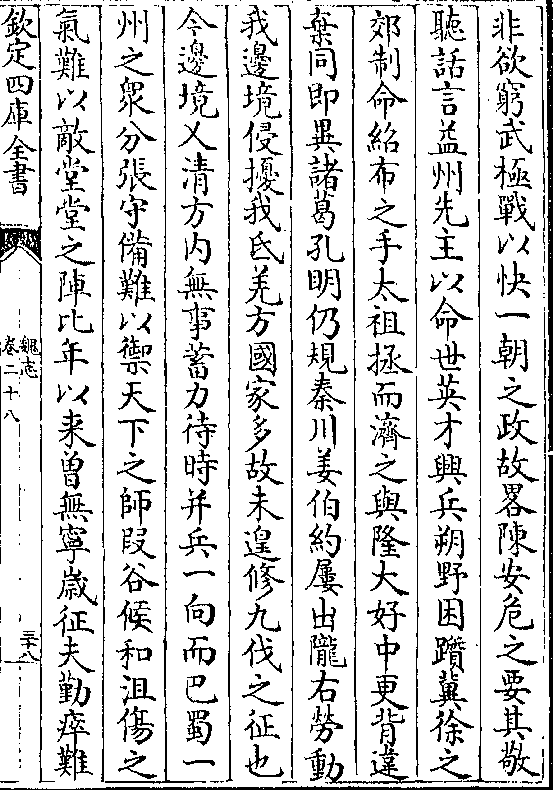 非欲窮武極戰以快一朝之政故畧陳安危之要其敬
聽話言益州先主以命世英才興兵朔野困躓冀徐之
郊制命紹布之手太祖拯而濟之與隆大好中更背違
棄同即異諸葛孔明仍規秦川姜伯約屢出隴右勞動
我邊境侵擾我氐羌方國家多故未遑修九伐之征也
今邊境乂清方内無事蓄力待時并兵一向而巴蜀一
州之衆分張守備難以禦天下之師叚谷候和沮傷之
氣難以敵堂堂之陣比年以来曾無寧歲征夫勤瘁難
欽定四庫全書
魏志
卷二十八
三十八